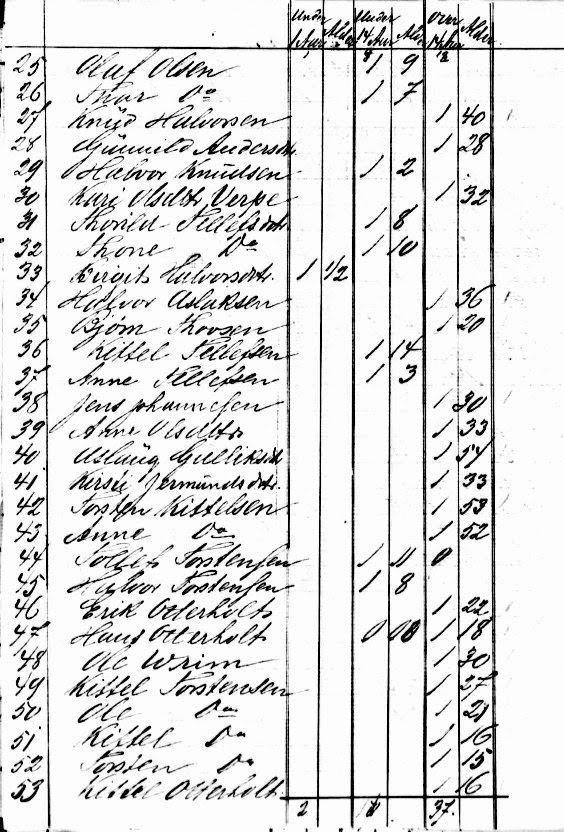 Under Alder Under Alder Over Alder
1 Aar 14 Aar
25 Oluf Olsen 1 9
26 Do 1 7
27 Knud Halvorsen 1 40
28 Gunnild Andersdtr 1 28
29 Halvor Knudsen 1 2
30 Kari Olsdtr, Verpe 1 32
31 Thorild Tellefsdtr 1 8
32 Thone Do 1 10
33 Bergit Halvorsdtr. 1 1/2
34 Halvor Aslaksen 1 36
35 Bjørn Thovsen 1 20
36 Kittel Tellefsen 1 14
37 Anne Tellefsen 1 3
38 Jens Johannesen 1 30
39 Anne Olsdtr 1 33
40 Aslaug Gulliksdt 1 54
41 Kirsti Jermundsdtr. 1 33
42 Torsten Kittelsen 1 53
43 Anne Do 1 52
44 Tollef Torstensen 1 11 0
45 Halvor Torstensen 1 8
46 Erik Otterholt 1 22
47 Hans Otterholt 0 00 1 18
48 Ole Wrim 1 30
49 Kittel Torstensen 1 27
50 Ole Do 1 21
51 Kittel Do 1 16
52 Torsten Do 1 15
53 Kittel Otterholt 1 16
2 37.